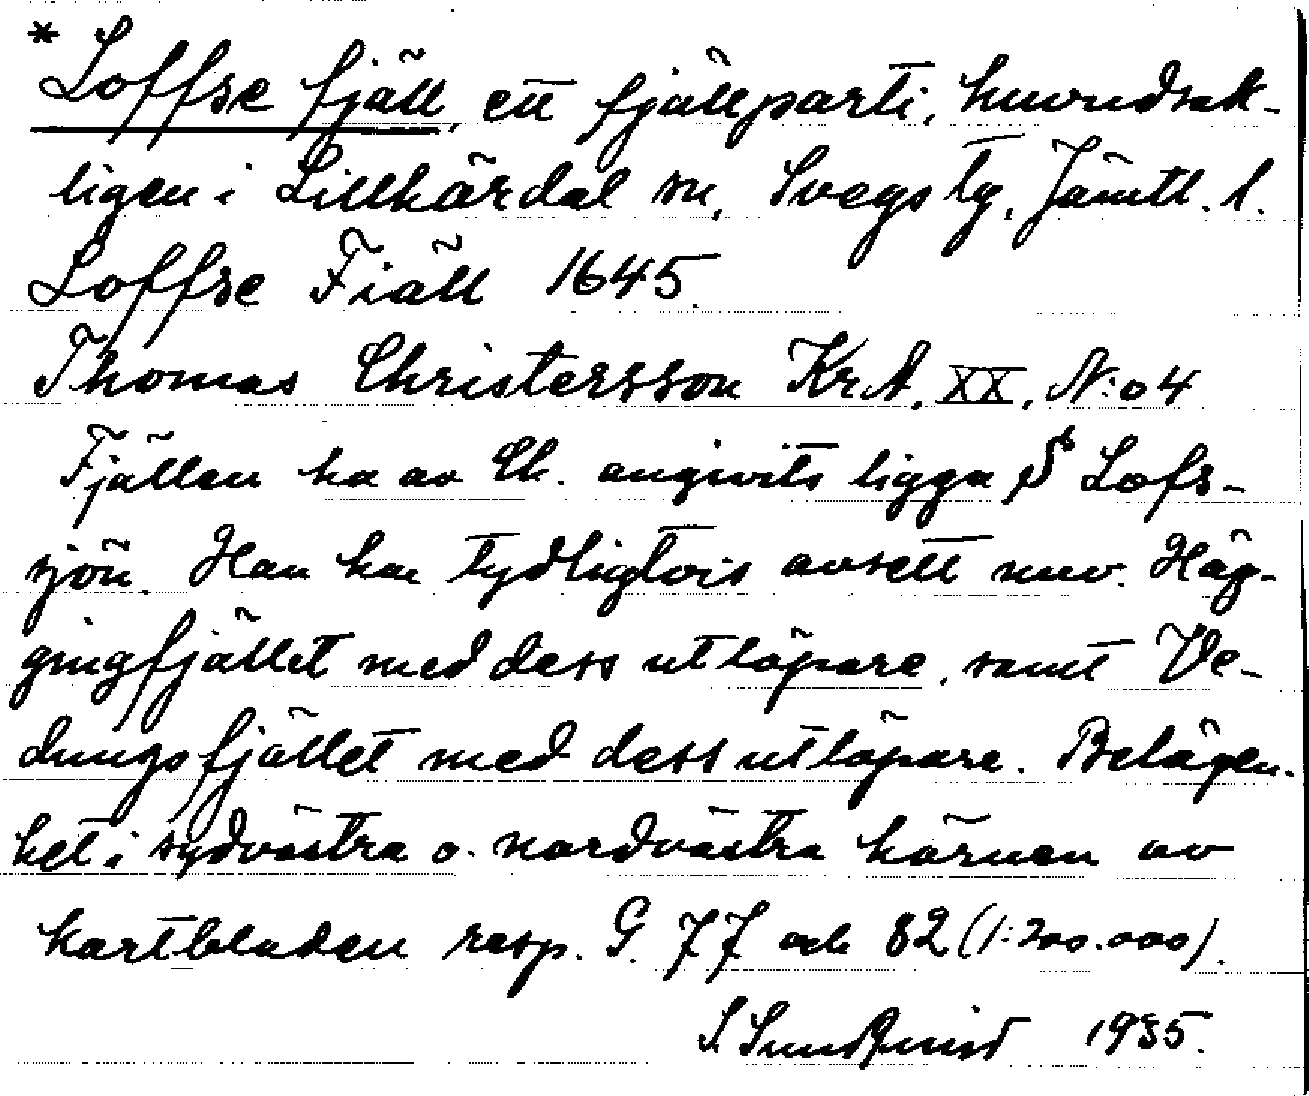 * Loffse fjäll, ett fjällparti, huvudsak-
ligen i Lillhärdal sn, Svegs tg, Jämtl. l.
Loffse Fiäll 1645.
Thomas Christersson KrA, XX, N:o 4
Fjällen ha av Ch. angivits ligga på Lofs-
sjön. Han har tydligtvis avsett nuv. Häg-
gingfjället med dess utlöpare, samt Ve-
dungsfjället med dess utlöpare. Belägen-
het i sydvästra o. nordvästra hörnen av
kartbladen resp. G. 77 och 82 (1:200.000).
S Sundquist 1935.